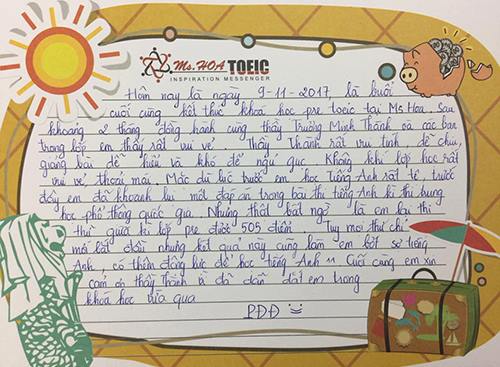 Ms.HOA TOEIC
INSPIRATION MESSENGER
Hôm nay là ngày 9-11-2017, là buổi
cuối cùng kết thúc khoá học pre toeic tại Ms Hoa. Sau
khoảng 2 tháng đồng hành cùng thầy Trương Minh Thành và các bạn
trong lớp em thấy rất vui vẻ. Thầy Thành rất vui tính, dễ chịu,
giảng bài dễ hiểu và khó để ngủ gục. Không khí lớp học rất
vui vẻ thoải mái. Mặc dù lúc trước em học Tiếng Anh rất tệ, trước
đây em đã khoanh lụi một đáp án trong bài thi tiếng Anh kì thi trung
học phổ thông quốc gia. Nhưng thật bất ngờ là em lại thi
thử giữa kì lớp pre được 505 điểm. Tuy mọi thứ chỉ
mới bắt đầu nhưng kết quả này cũng làm em bớt sợ tiếng
Anh có thêm động lực để học tiếng Anh. Cuối cùng em xin
cảm ơn thầy Thành vì đã dẫn dắt em trong
khoá học vừa qua
PĐĐ